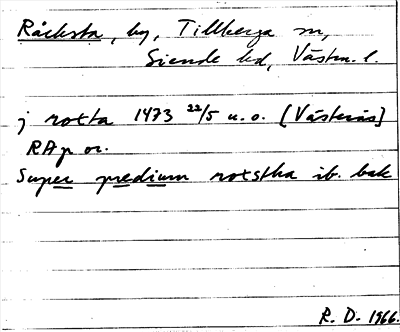 Råcksta, by, Tillberga sn,
Siende hd, Västm. l.
j rotta 1473 22/5 u.o. [Västerås]
RAp or.
Super predium rotstha ib. bak
R. D. 1966.